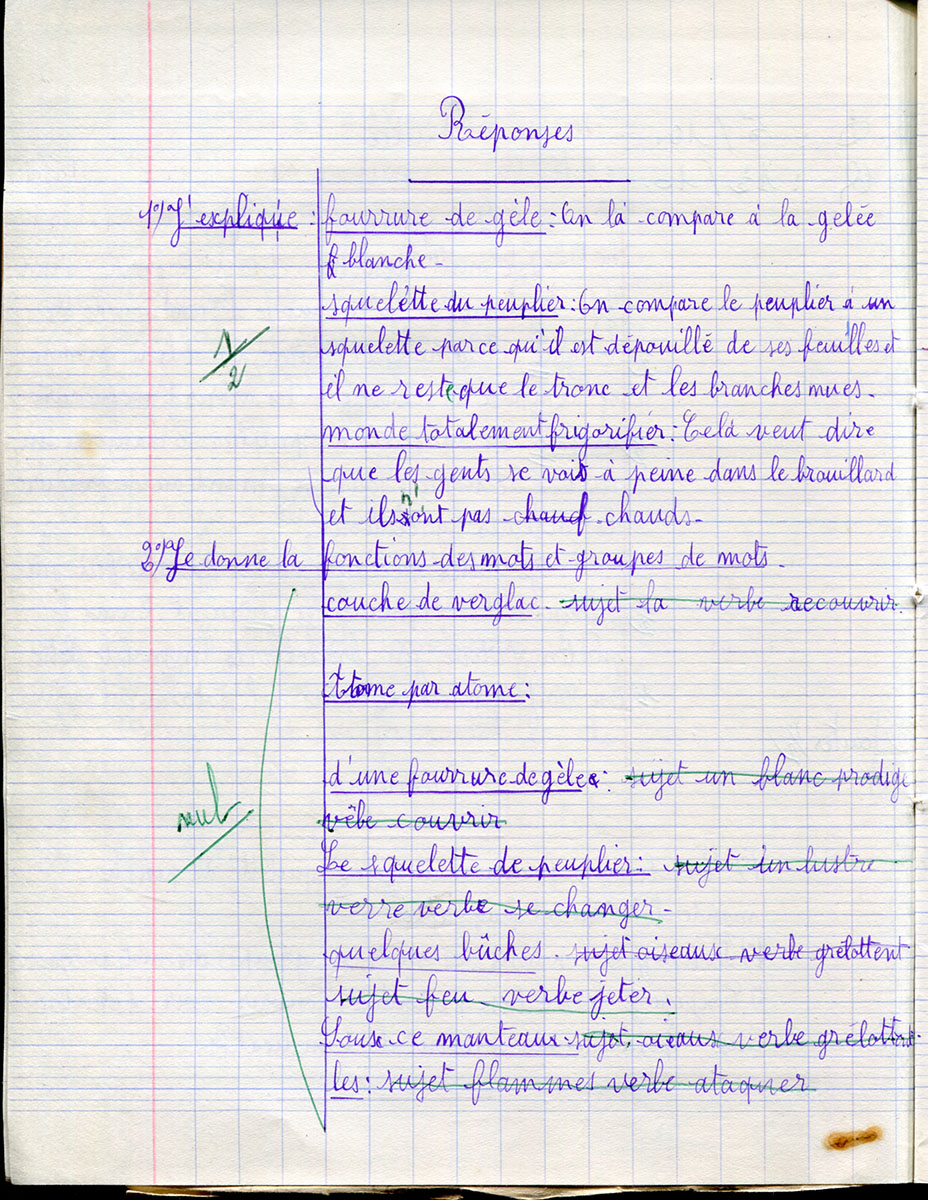 Réponses
1°) J'explique : fourrure de gèle : On là compare à la gelée
blanche -
squelétte du peuplier : On compare le peuplier à un
squelette parce qu'il est dépouillé de ses feuilles et
il ne reste que le tronc et les branches nues.
1/2
monde totalement frigorifier : Celà veut dire
que les gents se vois à peine dans le brouillard
et ils n'ont pas chauf chauds -
2°) Je donne la fonctions des mots et groupes de mots.
couche de verglac. sujet la verbe recouvrir.
Atome par atome :
d'une fourrure de gèle : sujet un blanc prodige
nul
vêbe couvrir
Le squelette de peuplier : sujet un lustre
verre verbe se changer -
quelques bûches. sujet oiseaux verbe grélottent
sujet feu verbe jeter.
Sous ce manteaux sujet, oiseaux verbe grélottent
les : sujet flammes verbe ataquer